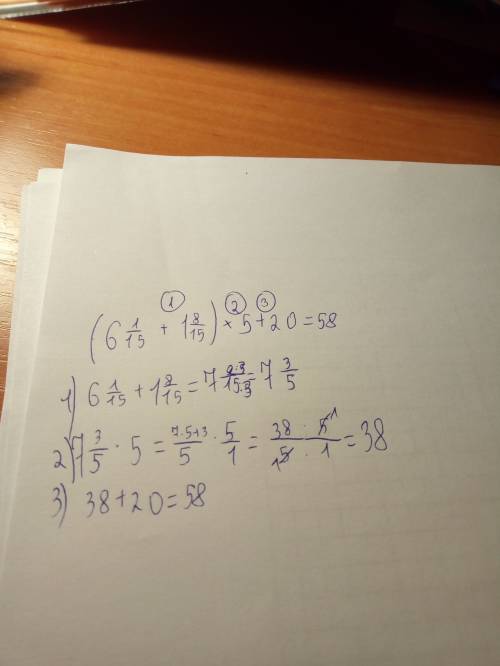 ① ② ③
(6 1/15 + 1 8/15) × 5 + 20 = 58
1) 6 1/15 + 1 8/15 = 7 9:3/15:3 = 7 3/5
2) 7 3/5 · 5 = 7·5+3/5 · 5/1 = 38 · 5 1/1 5 · 1 = 38
3) 38 + 20 = 58